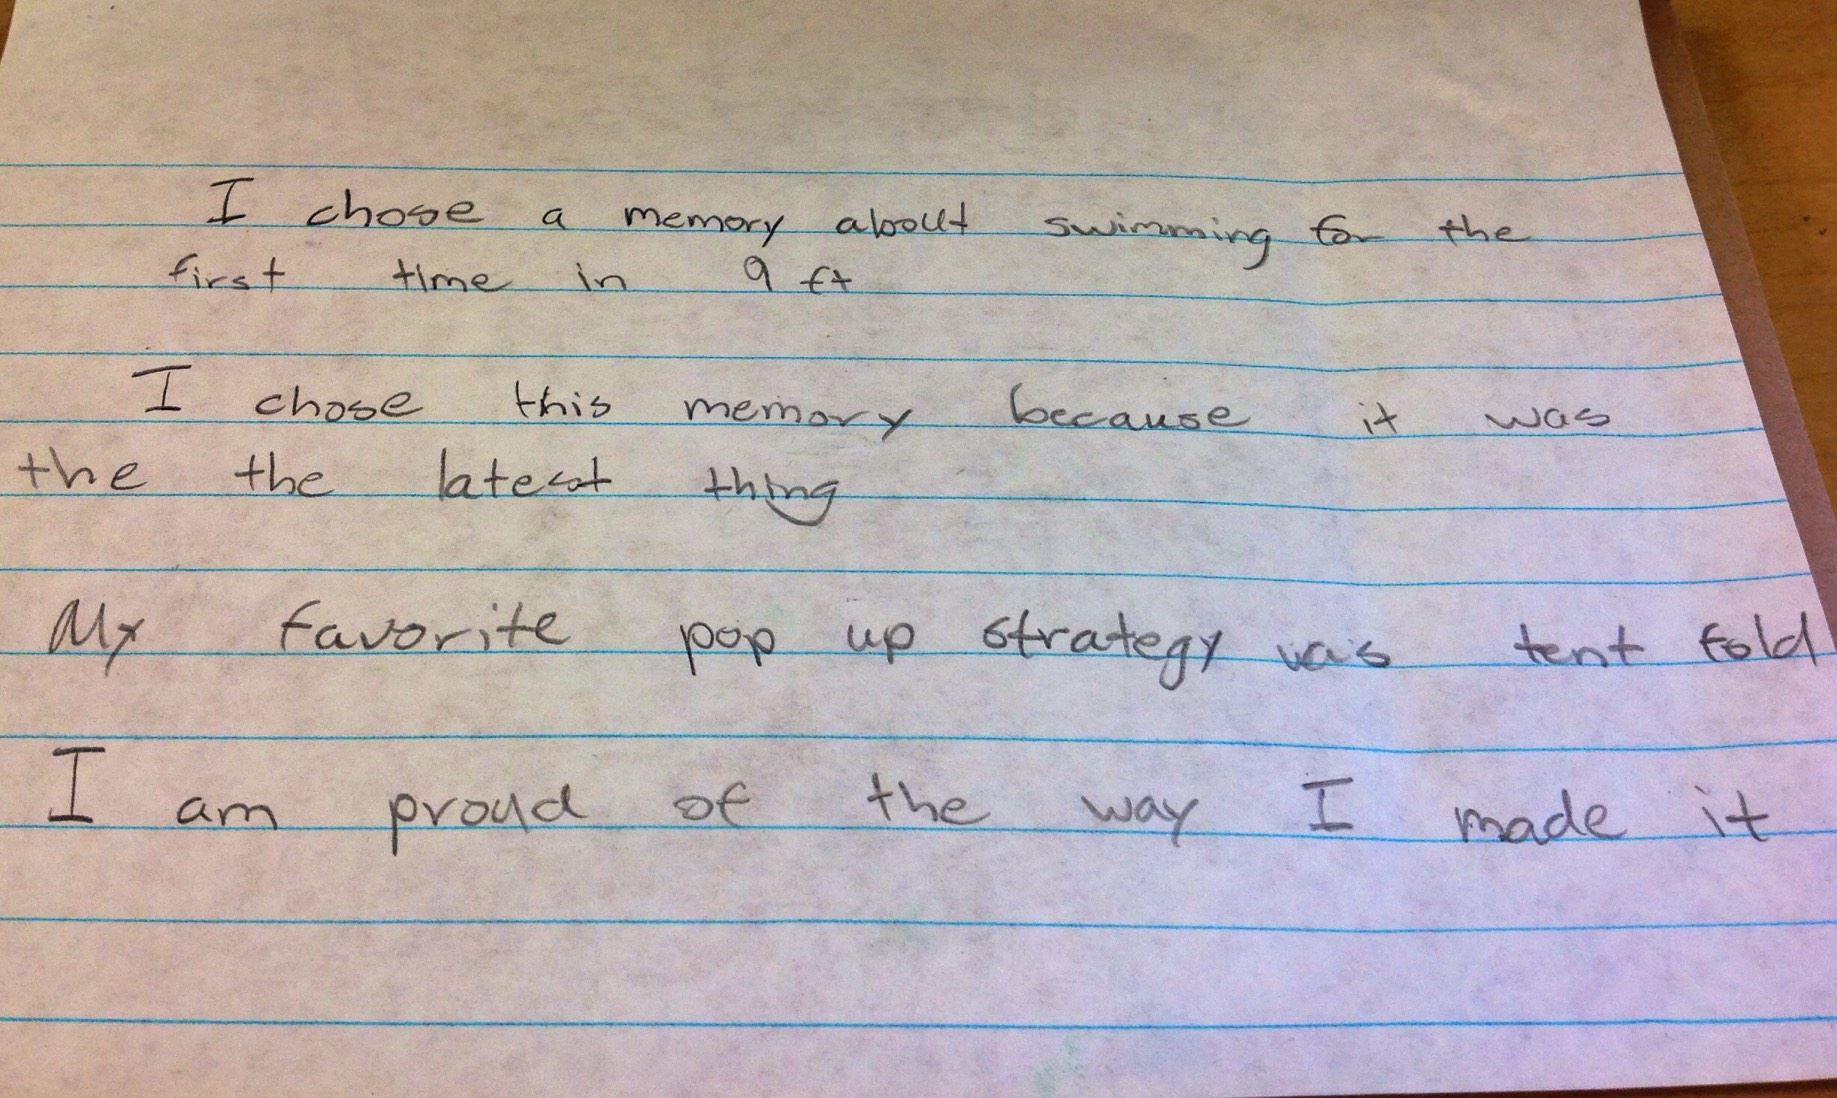 I chose a memory about swimming for the
first time in 9 ft
I chose this memory because it was
the the latest thing
My favorite pop up strategy was tent fold
I am proud of the way I made it